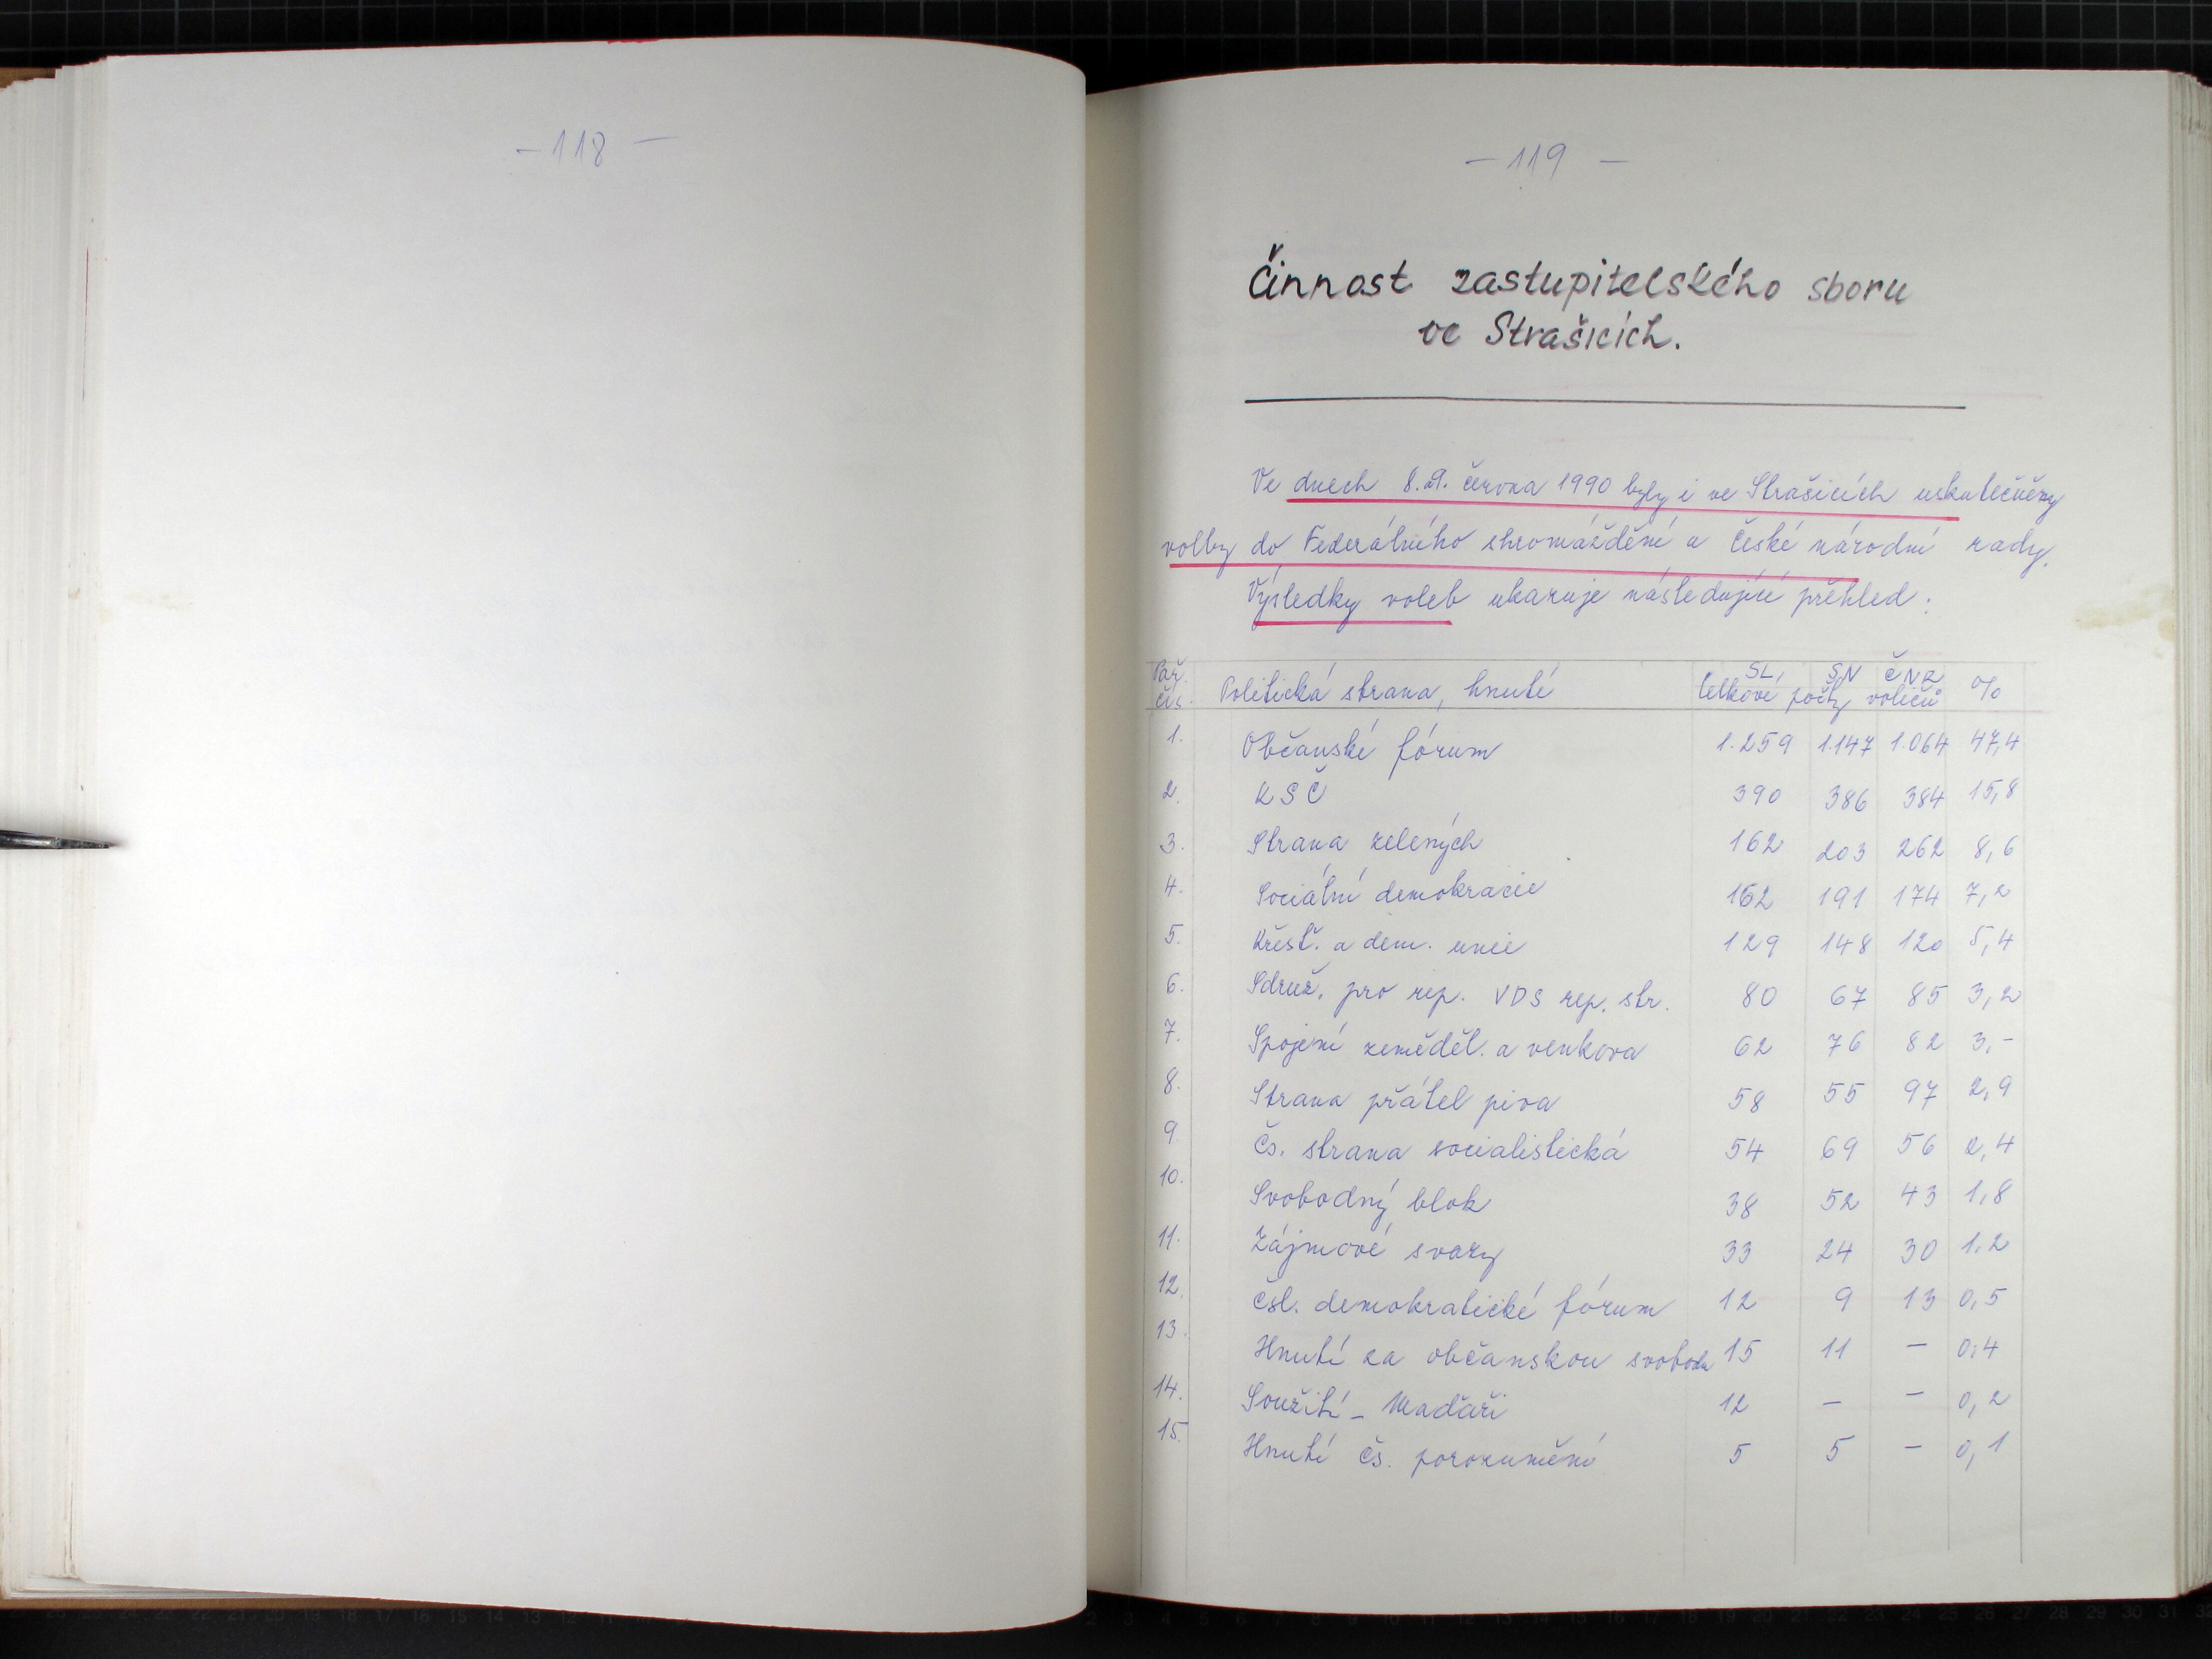 - 118 -
- 119 -
Činnost zastupitelského sboru
ve Strašicích.
Ve dnech 8.a9. června 1990 byly i ve Strašicích uskutečněny
volby do Federálního shromáždění a České národní rady.
Výsledky voleb ukazuje následující přehled:
Poř. čís. Politická strana, hnutí SL, SN ČNR Celkové počty voličů %
1. Občanské fórum 1.259 1.147 1.064 47,4
2. KSČ 390 386 384 15,8
3. Strana zelených 162 203 262 8,6
4. Sociální demokracie 162 191 174 7,2
5. Křesť. a dem. unie 129 148 120 5,4
6. Sdruž. pro rep. VDS rep. str. 80 67 85 3,2
7. Spojení zeměděl. a venkova 62 76 82 3,-
8. Strana přátel piva 58 55 97 2,9
9. Čs. strana socialistická 54 69 56 2,4
10. Svobodný blok 38 52 43 1,8
11. Zájmové svazy 33 24 30 1,2
12. Čsl. demokratické fórum 12 9 13 0,5
13. Hnutí za občanskou svobodu 15 11 - 0,4
14. Soužití - Maďaři 12 - - 0,2
15. Hnutí čs. porozumění 5 5 - 0,1